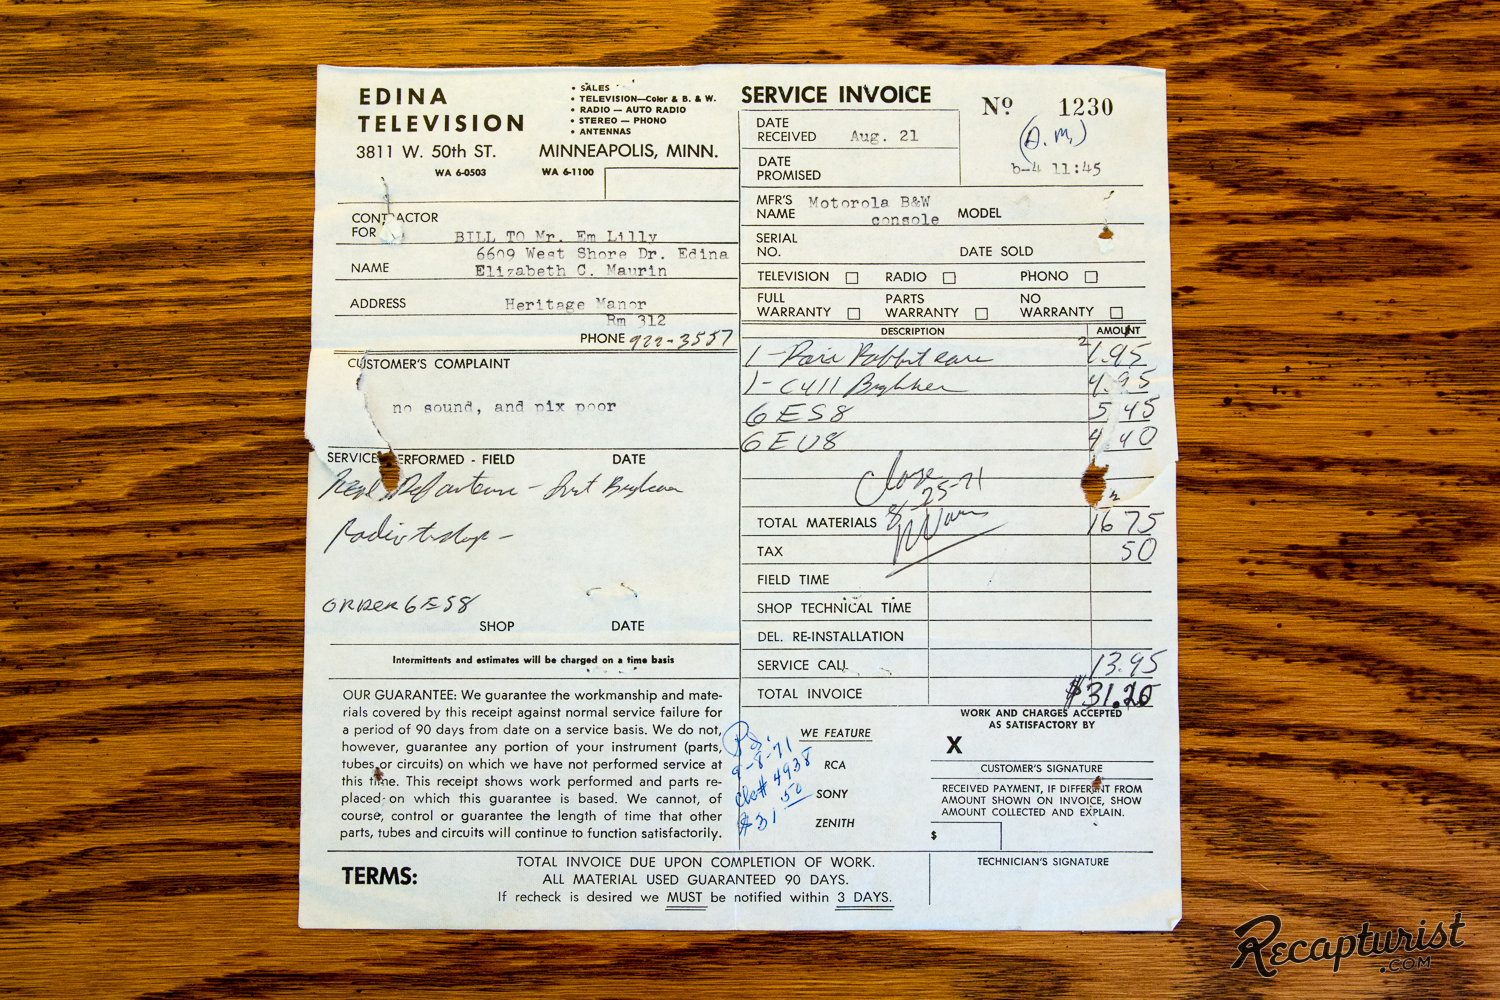 EDINA
TELEVISION
• SALES
• TELEVISION—Color & B. & W.
• RADIO — AUTO RADIO
• STEREO — PHONO
• ANTENNAS
3811 W. 50th ST. MINNEAPOLIS, MINN.
WA 6-0503 WA 6-1100
CONTRACTOR
FOR
BILL TO Mr. Em Lilly
6609 West Shore Dr. Edina
NAME Elizabeth C. Maurin
ADDRESS Heritage Manor
Rm 312
PHONE 922-3557
CUSTOMER'S COMPLAINT
no sound, and pix poor
SERVICE PERFORMED - FIELD DATE
ORDER 6ES8
SHOP DATE
Intermittents and estimates will be charged on a time basis
OUR GUARANTEE: We guarantee the workmanship and mate-
rials covered by this receipt against normal service failure for
a period of 90 days from date on a service basis. We do not,
however, guarantee any portion of your instrument (parts,
tubes or circuits) on which we have not performed service at
this time. This receipt shows work performed and parts re-
placed on which this guarantee is based. We cannot, of
course, control or guarantee the length of time that other
parts, tubes and circuits will continue to function satisfactorily.
SERVICE INVOICE
No 1230
(A.M.)
b-4 11:45
DATE
RECEIVED Aug. 21
DATE
PROMISED
MFR'S
NAME Motorola B&W
console MODEL
SERIAL
NO. DATE SOLD
TELEVISION RADIO PHONO
FULL
WARRANTY PARTS
WARRANTY NO
WARRANTY
DESCRIPTION AMOUNT
1 - Pair Rabbit ears 1.95
1 - C411 4.95
6ES8 5 45
6EU8 4 40
8 25-71
TOTAL MATERIALS 16 75
TAX 50
FIELD TIME
SHOP TECHNICAL TIME
DEL. RE-INSTALLATION
SERVICE CALL 13.95
TOTAL INVOICE $31.20
Pd.
9-8-71
ck# 4938
$31 50
WE FEATURE
RCA
SONY
ZENITH
WORK AND CHARGES ACCEPTED
AS SATISFACTORY BY
X
CUSTOMER'S SIGNATURE
RECEIVED PAYMENT, IF DIFFERENT FROM
AMOUNT SHOWN ON INVOICE, SHOW
AMOUNT COLLECTED AND EXPLAIN.
$
TECHNICIAN'S SIGNATURE
TERMS:
TOTAL INVOICE DUE UPON COMPLETION OF WORK.
ALL MATERIAL USED GUARANTEED 90 DAYS.
If recheck is desired we MUST be notified within 3 DAYS.
Recapturist
.COM